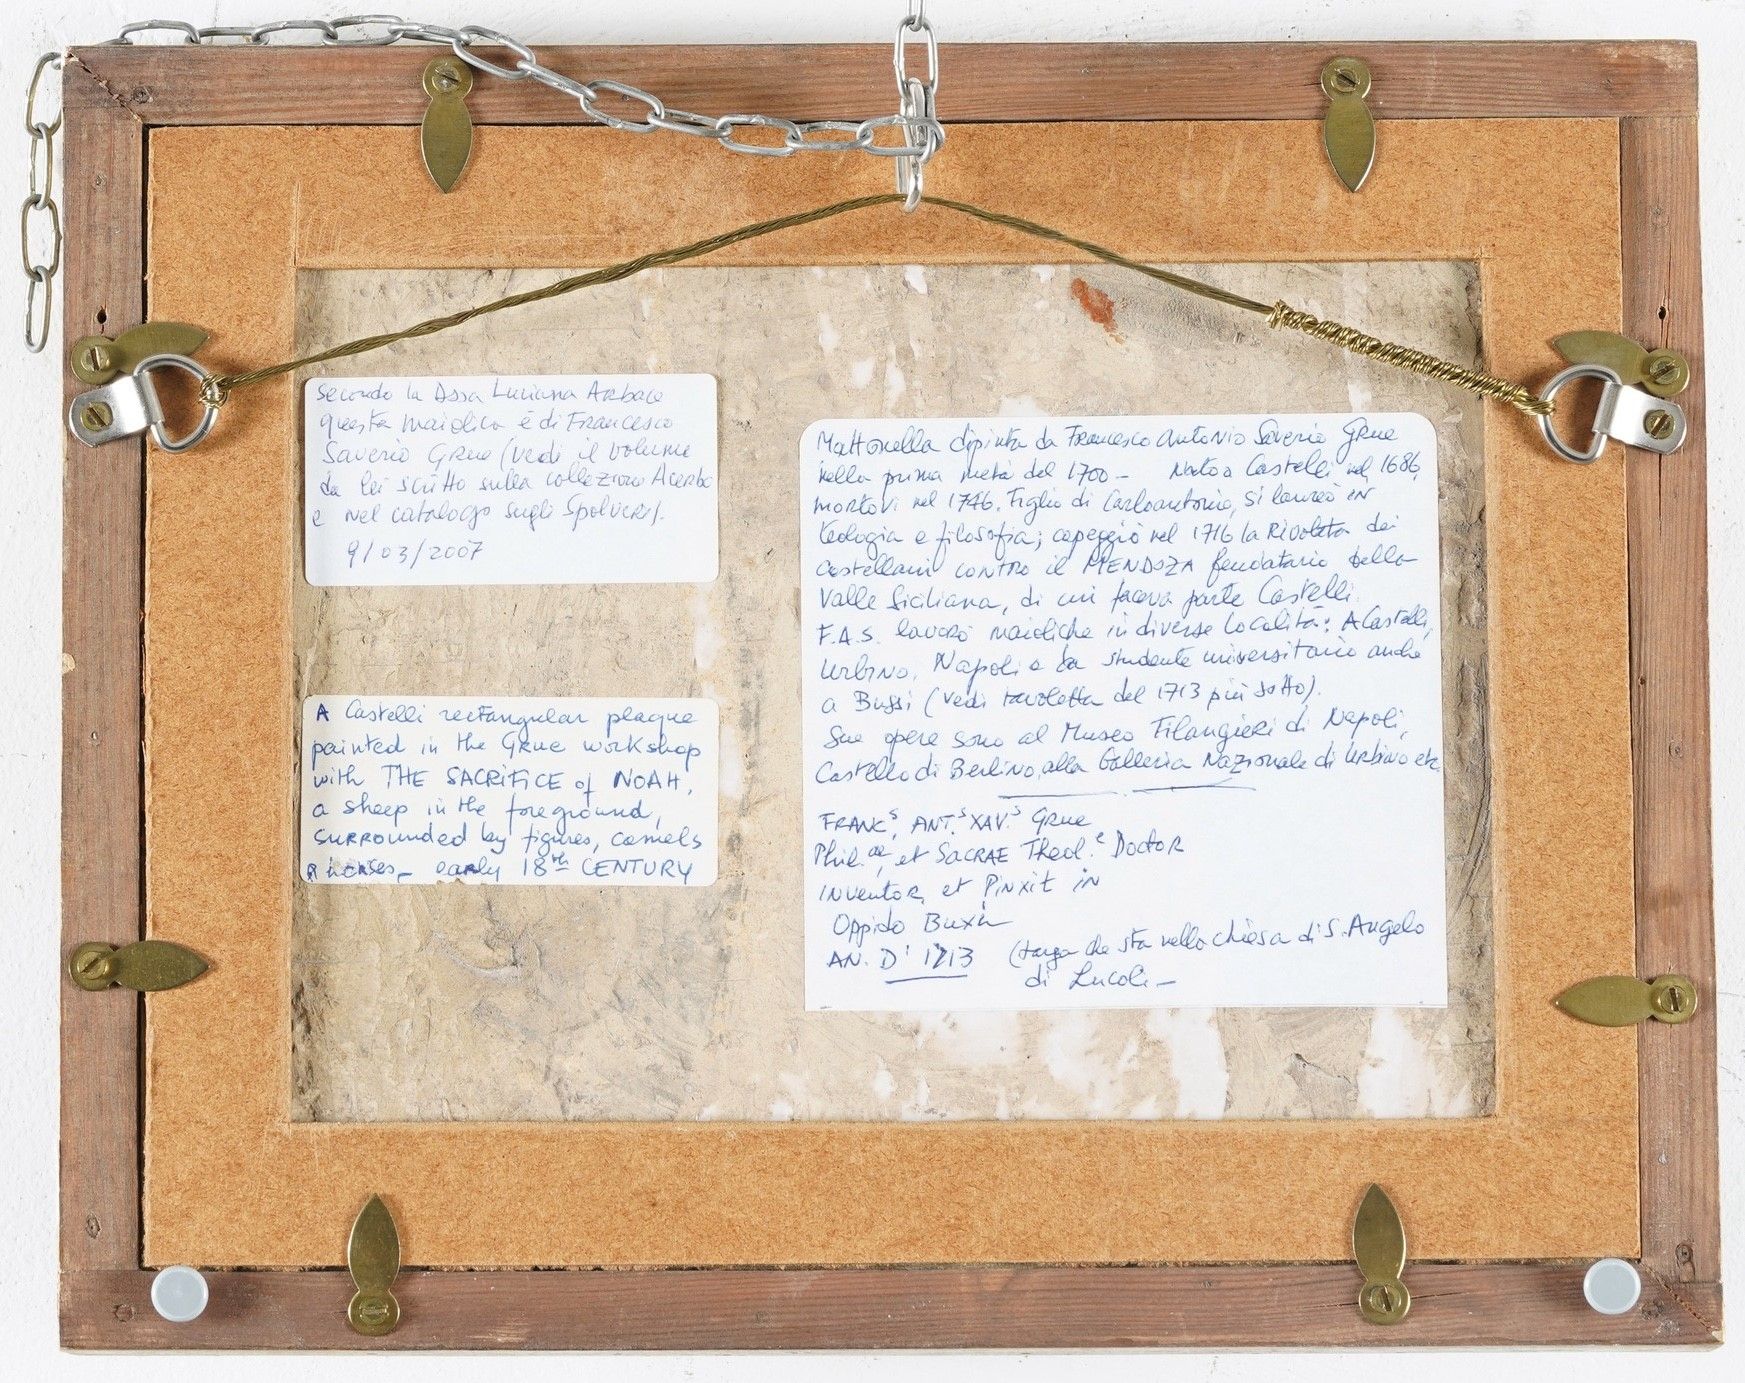 Secondo la Dssa Luciana Arbace
questa maiolica è di Francesco
Saverio Grue (vedi il volume
da lei scritto sulla collezione Acerbo
e nel catalogo sugli Spolveri).
9/03/2007
A Castelli rectangular plaque
painted in the Grue workshop
with THE SACRIFICE of NOAH,
a sheep in the foreground,
surrounded by figures, camels
horses - early 18th CENTURY
Mattonella dipinta da Francesco Antonio Saverio Grue
nella prima metà del 1700 - Nato a Castelli nel 1686,
mortovi nel 1746. Figlio di Carloantonio, si laureò in
teologia e filosofia; capeggiò nel 1716 la Rivolta dei
Castellani contro il MENDOZA feudatario della
Valle Siciliana, di cui faceva parte Castelli.
F.A.S. lavorò maioliche in diverse località: A Castelli,
Urbino, Napoli e da studente universitario anche
a Bussi (vedi tavoletta del 1713 più sotto).
Sue opere sono al Museo Filangieri di Napoli,
Castello di Berlino, alla Galleria Nazionale di Urbino etc.
FRANCs, ANT.s XAV.s Grue
Phil.ae, et SACRAE Theol.e Doctor
INVENTOR, et PINXit in
Oppido Buxii
AN. D: 1713 (targa che sta nella chiesa di S. Angelo
di Lucoli -